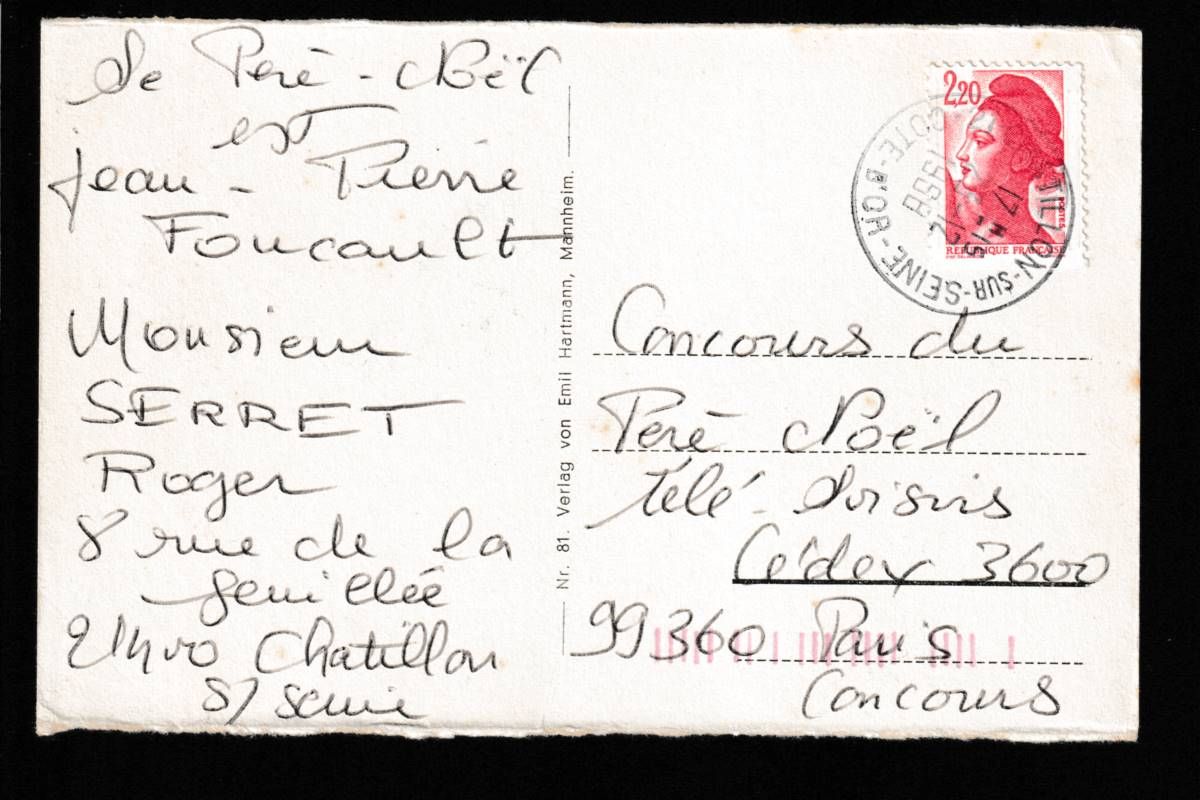 Le Père-Noël
est
jean-Pierre
Foucault
Monsieur
SERRET
Roger
8 rue de la
feuillée
21400 Chatillon
s/ seine
Nr. 81. Verlag von Emil Hartmann, Mannheim.
2,20
POSTES
REPUBLIQUE FRANÇAISE
TILLON-SUR-SEINE
COTE-D'OR
17
1988
Concours du
Père Noël
télé-Loisirs
Cédex 3600
99360 Paris
Concours